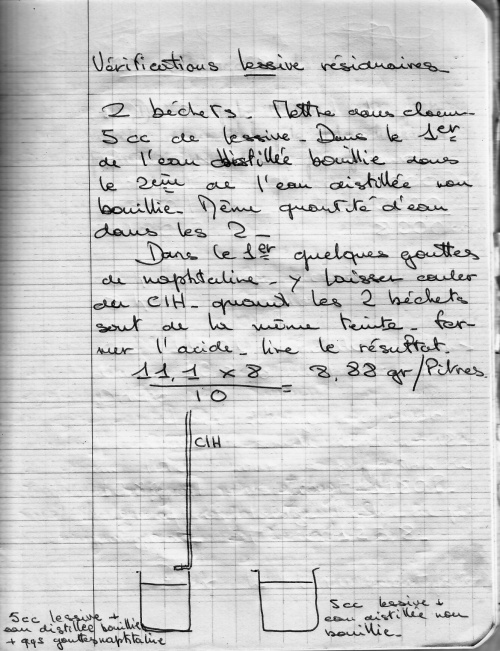 Vérifications lessive résiduaires_
2 béchets_ Mettre dans chacun
5 cc de lessive_ Dans le 1er
de l'eau distillée bouillie dans
le 2eme de l'eau distillée non
bouillie_ Même quantité d'eau
dans les 2_
Dans le 1er quelques gouttes
de naphtaline_ y laisser couler
du ClH_ quand les 2 béchets
sont de la même teinte_ fer-
mer l'acide_ lire le résultat.
11,1 x 8 / 10 = 8,88 gr/litres
ClH
5cc lessive +
eau distillée bouillie
+ qqs gouttes naphtaline
5cc lessive +
eau distillée non
bouillie_